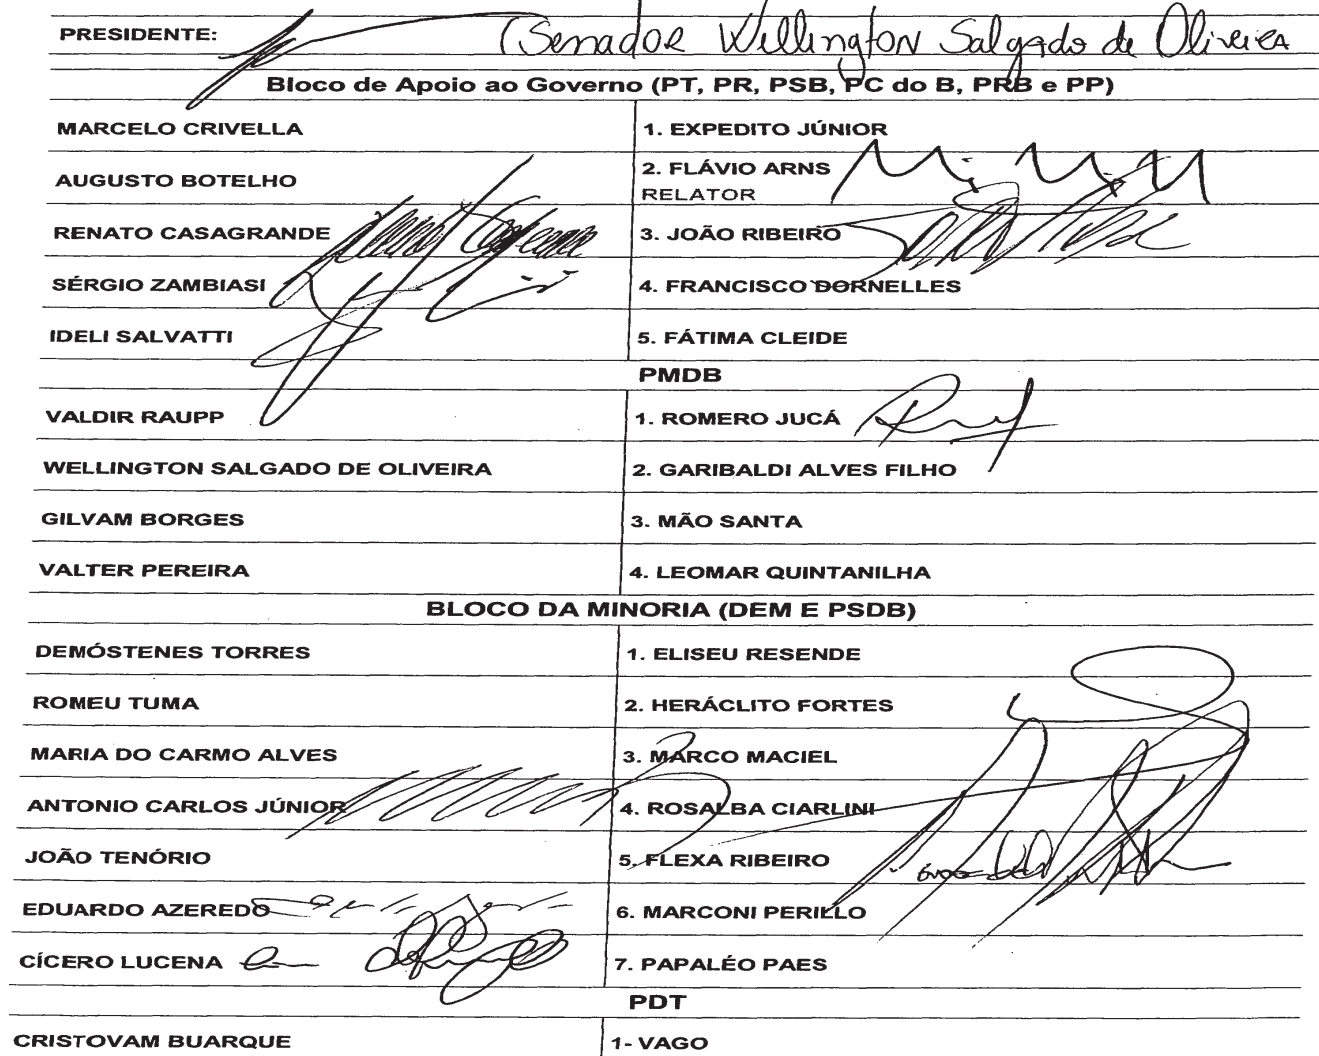 PRESIDENTE: (Senador Wellington Salgado de Oliveira
Bloco de Apoio ao Governo (PT, PR, PSB, PC do B, PRB e PP)
MARCELO CRIVELLA 1. EXPEDITO JÚNIOR
AUGUSTO BOTELHO 2. FLÁVIO ARNS
RELATOR
RENATO CASAGRANDE 3. JOÃO RIBEIRO
SÉRGIO ZAMBIASI 4. FRANCISCO DORNELLES
IDELI SALVATTI 5. FÁTIMA CLEIDE
PMDB
VALDIR RAUPP 1. ROMERO JUCÁ
WELLINGTON SALGADO DE OLIVEIRA 2. GARIBALDI ALVES FILHO
GILVAM BORGES 3. MÃO SANTA
VALTER PEREIRA 4. LEOMAR QUINTANILHA
BLOCO DA MINORIA (DEM E PSDB)
DEMÓSTENES TORRES 1. ELISEU RESENDE
ROMEU TUMA 2. HERÁCLITO FORTES
MARIA DO CARMO ALVES 3. MARCO MACIEL
ANTONIO CARLOS JÚNIOR 4. ROSALBA CIARLINI
JOÃO TENÓRIO 5. FLEXA RIBEIRO
EDUARDO AZEREDO 6. MARCONI PERILLO
CÍCERO LUCENA 7. PAPALÉO PAES
PDT
CRISTOVAM BUARQUE 1- VAGO